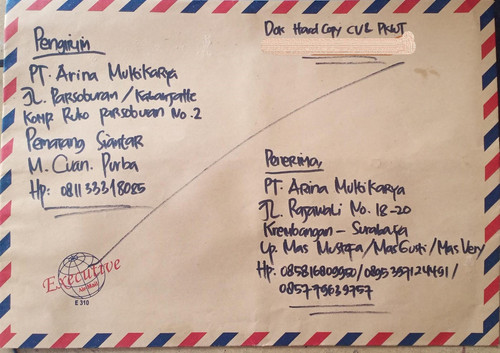 Pengirim
PT. Arina Multikarya
JL. Parsoburan / Kabanjahe
Komp Ruko parsoburan No. 2
Pematang Siantar
M. Cuan. Purba
Hp: 081133318085
Dok Hard Copy CV & PKWT
Penerima,
PT. Arina Multikarya
JL. Rajawali No. 18-20
Krembangan - Surabaya
Up. Mas Mustofa / Mas Gusti / Mas Very
Hp. 085816809950 / 0895397124491 /
0857-79639757
Executive
AirMail
E 310